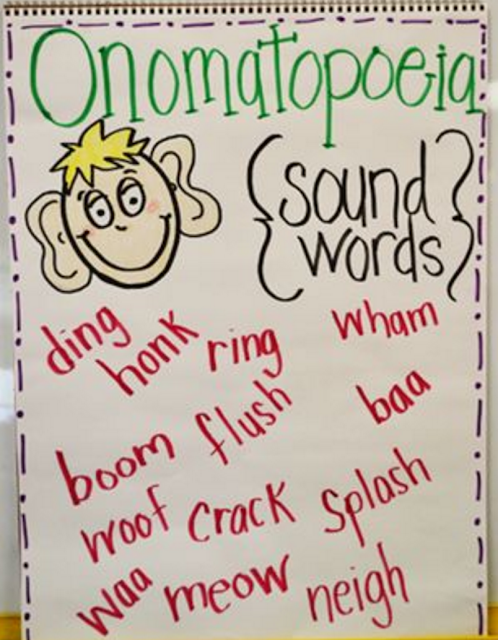 Onomatopoeia
{sound
words}
ding
honk
ring
wham
boom
flush
baa
woof
crack
splash
waa
meow
neigh